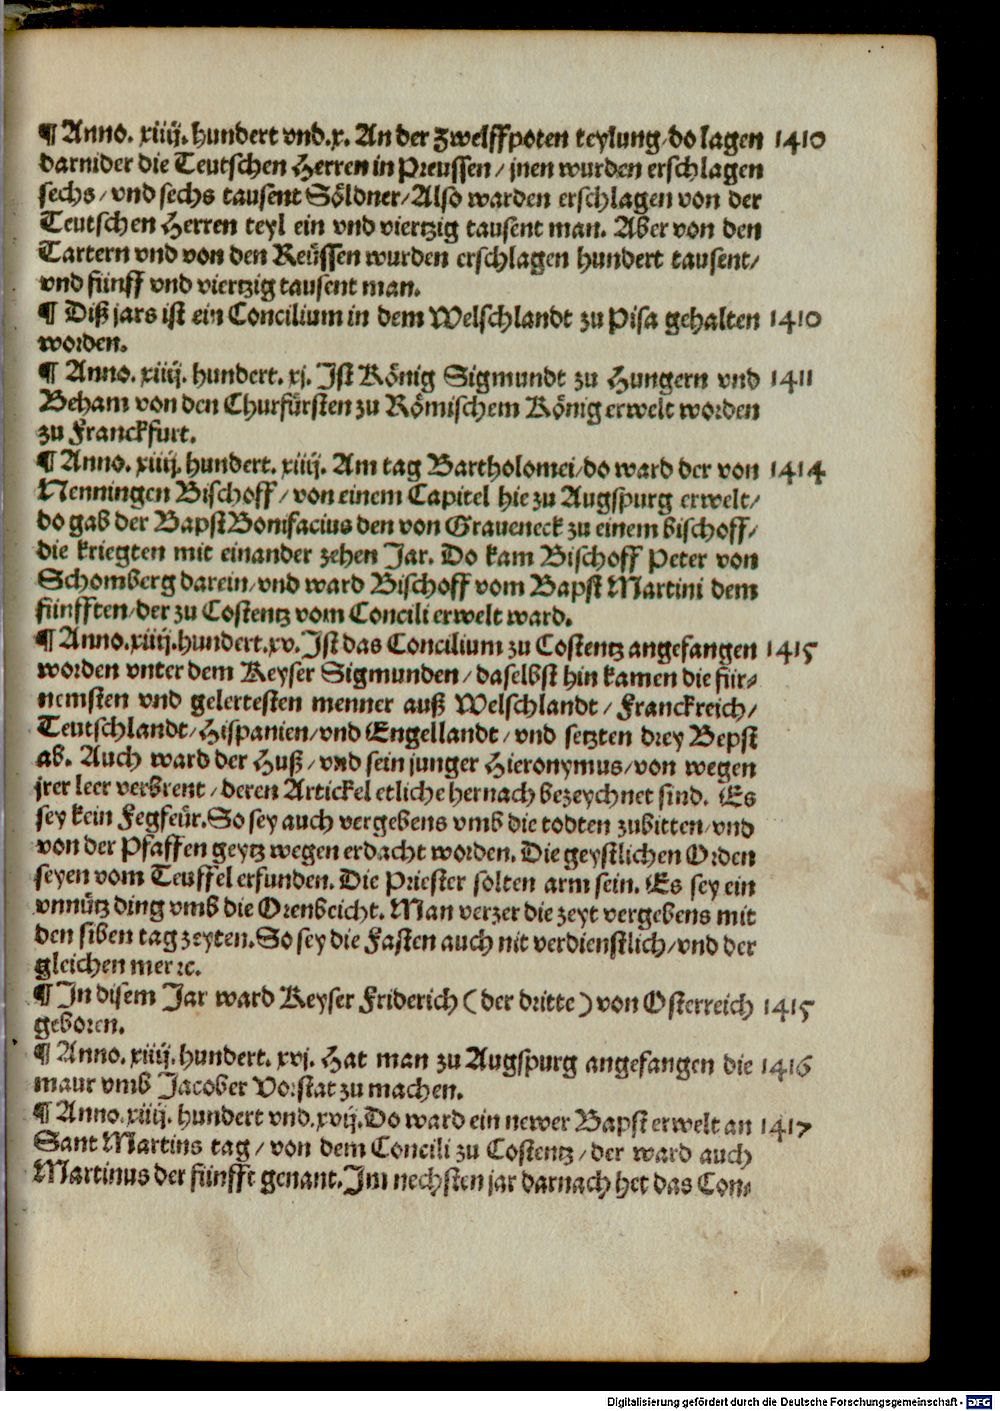 ¶ Anno. xiiij. hundert vnd. x. An der Zwelffpoten teylung / do lagen 1410
darnider die Teutschen Herren in Preussen / jnen wurden erschlagen
sechs / vnd sechs tausent Söldner / Also warden erschlagen von der
Teutschen Herren teyl ein vnd viertzig tausent man. Aber von den
Tartern vnd von den Reüssen wurden erschlagen hundert tausent /
vnd fünff vnd viertzig tausent man.
¶ Diß jars ist ein Concilium in dem Welschlandt zu Pisa gehalten 1410
worden.
¶ Anno. xiiij. hundert. xj. Ist König Sigmundt zu Hungern vnd 1411
Beham von den Churfürsten zu Römischem König erwelt worden
zu Franckfurt.
¶ Anno. xiiij. hundert. xiiij. Am tag Bartholomei / do ward der von 1414
Nenningen Bischoff / von einem Capitel hie zu Augspurg erwelt /
do gab der Bapst Bonifacius den von Graueneck zu einem bischoff /
die kriegten mit einander zehen Jar. Do kam Bischoff Peter von
Schomberg darein / vnd ward Bischoff vom Bapst Martini dem
fünfften / der zu Costentz vom Concili erwelt ward.
¶ Anno. xiiij. hundert. xv. Ist das Concilium zu Costentz angefangen 1415
worden vnter dem Keyser Sigmunden / daselbst hin kamen die für-
nemsten vnd gelertesten menner auß Welschlandt / Franckreich /
Teutschlandt / Hispanien / vnd Engellandt / vnd setzten drey Bepst
ab. Auch ward der Huß / vnd sein junger Hieronymus / von wegen
jrer leer verbrent / deren Artickel etliche hernach bezeychnet sind. Es
sey kein Fegfeür. So sey auch vergebens vmb die todten zubitten / vnd
von der Pfaffen geytz wegen erdacht worden. Die geystlichen Orden
seyen vom Teuffel erfunden. Die Priester solten arm sein. Es sey ein
vnnütz ding vmb die Orenbeicht. Man verzer die zeyt vergebens mit
den siben tag zeyten. So sey die Fasten auch nit verdienstlich / vnd der
gleichen mer ꝛc.
¶ In disem Jar ward Keyser Friderich ( der dritte ) von Osterreich 1415
geboren.
¶ Anno. xiiij. hundert. xvj. Hat man zu Augspurg angefangen die 1416
maur vmb Jacober Vorstat zu machen.
¶ Anno. xiiij. hundert vnd. xvij. Do ward ein newer Bapst erwelt an 1417
Sant Martins tag / von dem Concili zu Costentz / der ward auch
Martinus der fünfft genant. Im nechsten jar darnach het das Con-
Digitalisierung gefördert durch die Deutsche Forschungsgemeinschaft - DFG